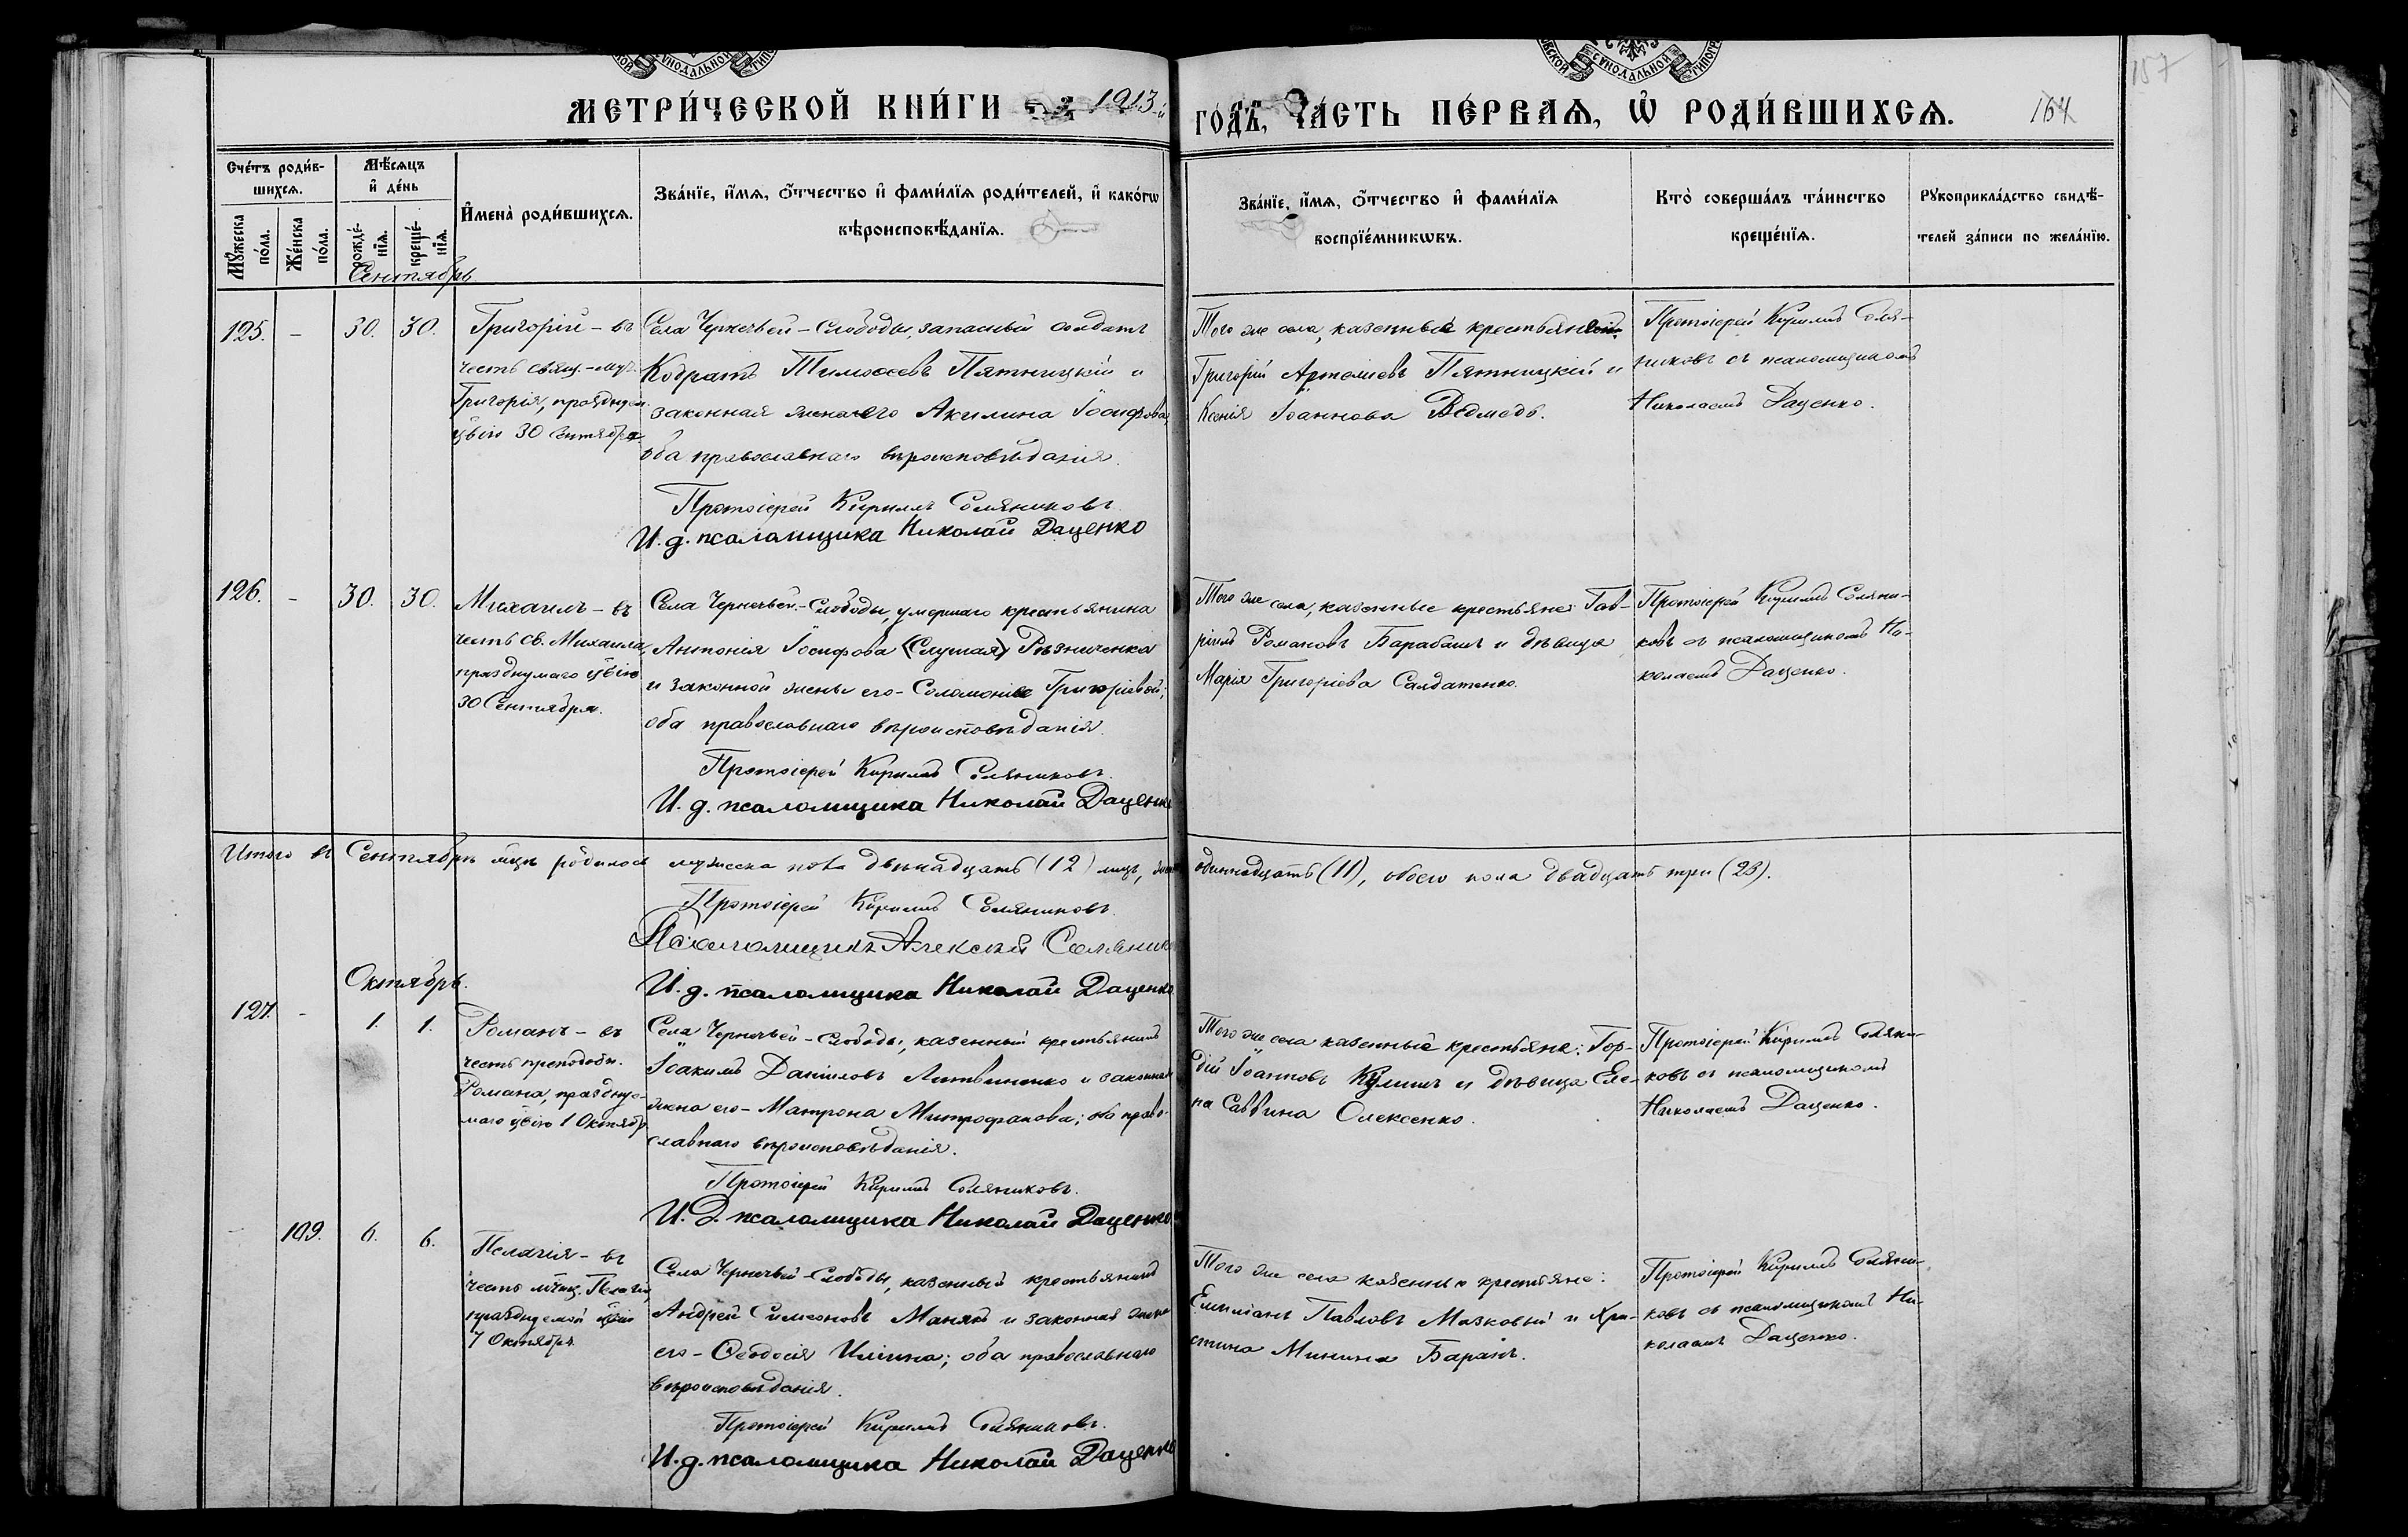 УНОДАЛЬНОЙ
СУНОДАЛЬНОЙ ТИПОГР
157
МЕТРИ́ЧЕСКОЙ КНИ́ГИ НА 1913-й
ГО́ДЪ, ЧА́СТЬ ПЕ́РВАѦ, Ѡ҆ РОДИ́ВШИХСѦ.
164
Сче́тъ роди́в-
шихсѧ.
Мѣ́сѧцъ
и҆ де́нь
И҆мена̀ роди́вшихсѧ.
Зва́нїе, и҆́мѧ, ѻ҆́тчество и҆ фами́лїѧ роди́телей, и҆ како́гѡ
вѣроисповѣ́данїѧ.
Му́жеска по́ла.
Же́нска по́ла.
рожде́-нїѧ.
креще́-нїѧ.
Зва́нїе, и҆́мѧ, ѻ҆́тчество и҆ фами́лїѧ
воспрїе́мникѡвъ.
Кто̀ соверша́лъ та́инство
креще́нїѧ.
Рꙋкоприкла́дство свидѣ́-
телей за́писи по жела́нїю.
Сентябрь
125. - 30. 30.
Григорій - въ
честь свящ.-муч.
Григорія, празднуем.
30 Сентября.
Села Чернечьей-Слободы, запасный солдатъ
Кодратъ Тимоѳеевъ Пятницкій и
законная жена его Акилина Іосифова,
оба православнаго вѣроисповѣданія.
Протоіерей Кириллъ Соляниковъ.
И. д. псаломщика Николай Даценко
Того же села, казенные крестьяне:
Григорій Артеміевъ Пятницкій и
Ксенія Іоаннова Ведмедь.
Протоіерей Кириллъ Соля-
никовъ съ псаломщикомъ
Николаемъ Даценко.
126. - 30. 30.
Михаилъ - въ
честь св. Михаила,
празднумаго
30 Сентября.
Села Чернечьей-Слободы, умершаго крестьянина
Антонія Іосифова (Слушая) Рѣзниченка
и законной жены его - Соломоніи Григоріевой;
оба православнаго вѣроисповѣданія.
Протоіерей Кириллъ Соляниковъ.
И. д. псаломщика Николай Даценко
Того же села, казенные крестьяне: Гав-
ріилъ Романовъ Барабашъ и дѣвица
Марія Григоріева Салдатенко.
Протоіерей Кириллъ Соляни-
ковъ съ псаломщикомъ Ни-
колаемъ Даценко.
Итого въ Сентябрѣ м͠цѣ родилось мужеска пола двѣнадцать (12) лицъ,
одиннадцать (11), обоего пола двадцать три (23).
Протоіерей Кириллъ Соляниковъ.
Псаломщикъ Алексей Соляников
И. д. псаломщика Николай Даценко
Октябрь.
127. - 1. 1.
Романъ - въ
честь преподобн.
Романа, праздну-
маго 1 Октября
Села Чернечьей-Слободы, казенный крестьянинъ
Іоакимъ Даніиловъ Литвиненко и законная
жена его - Матрона Митрофанова; оба право-
славнаго вѣроисповѣданія.
Протоіерей Кириллъ Соляниковъ.
И. Д. псаломщика Николай Даценко
Того же села казенные крестьяне: Гор-
дій Іоанновъ Кулишъ и дѣвица Еле-
на Саввина Олексенко.
Протоіерей Кириллъ Соляни-
ковъ съ псаломщикомъ
Николаемъ Даценко.
- 109. 6. 6.
Пелагія - въ
честь мчиц. Пелагіи,
празднуемой
7 Октября.
Села Чернечьей-Слободы, казенный крестьянинъ
Андрей Симеоновъ Манякъ и законная жена
его - Ѳеодосія Иліина; оба православнаго
вѣроисповѣданія.
Протоіерей Кириллъ Соляниковъ.
И. д. псаломщика Николай Даценко
Того же села казенные крестьяне:
Емиліанъ Павловъ Мазковый и Хри-
стина Минина Баранъ.
Протоіерей Кириллъ Соляни-
ковъ съ псаломщикомъ Ни-
колаемъ Даценко.